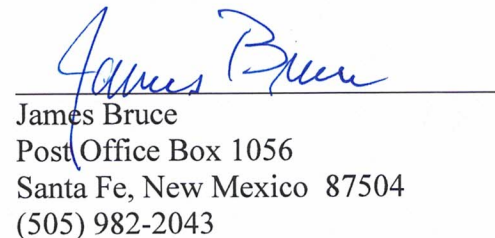 James Bruce
James Bruce
Post Office Box 1056
Santa Fe, New Mexico  87504
(505) 982-2043